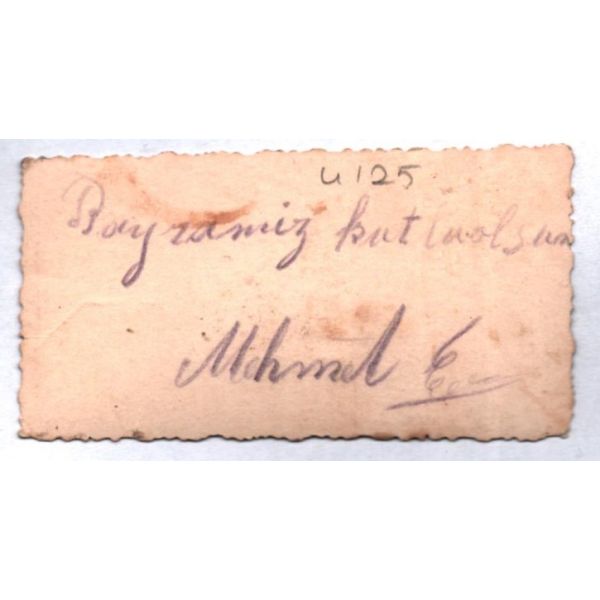 U125
Bayramiz kutluolsun
Mehmet